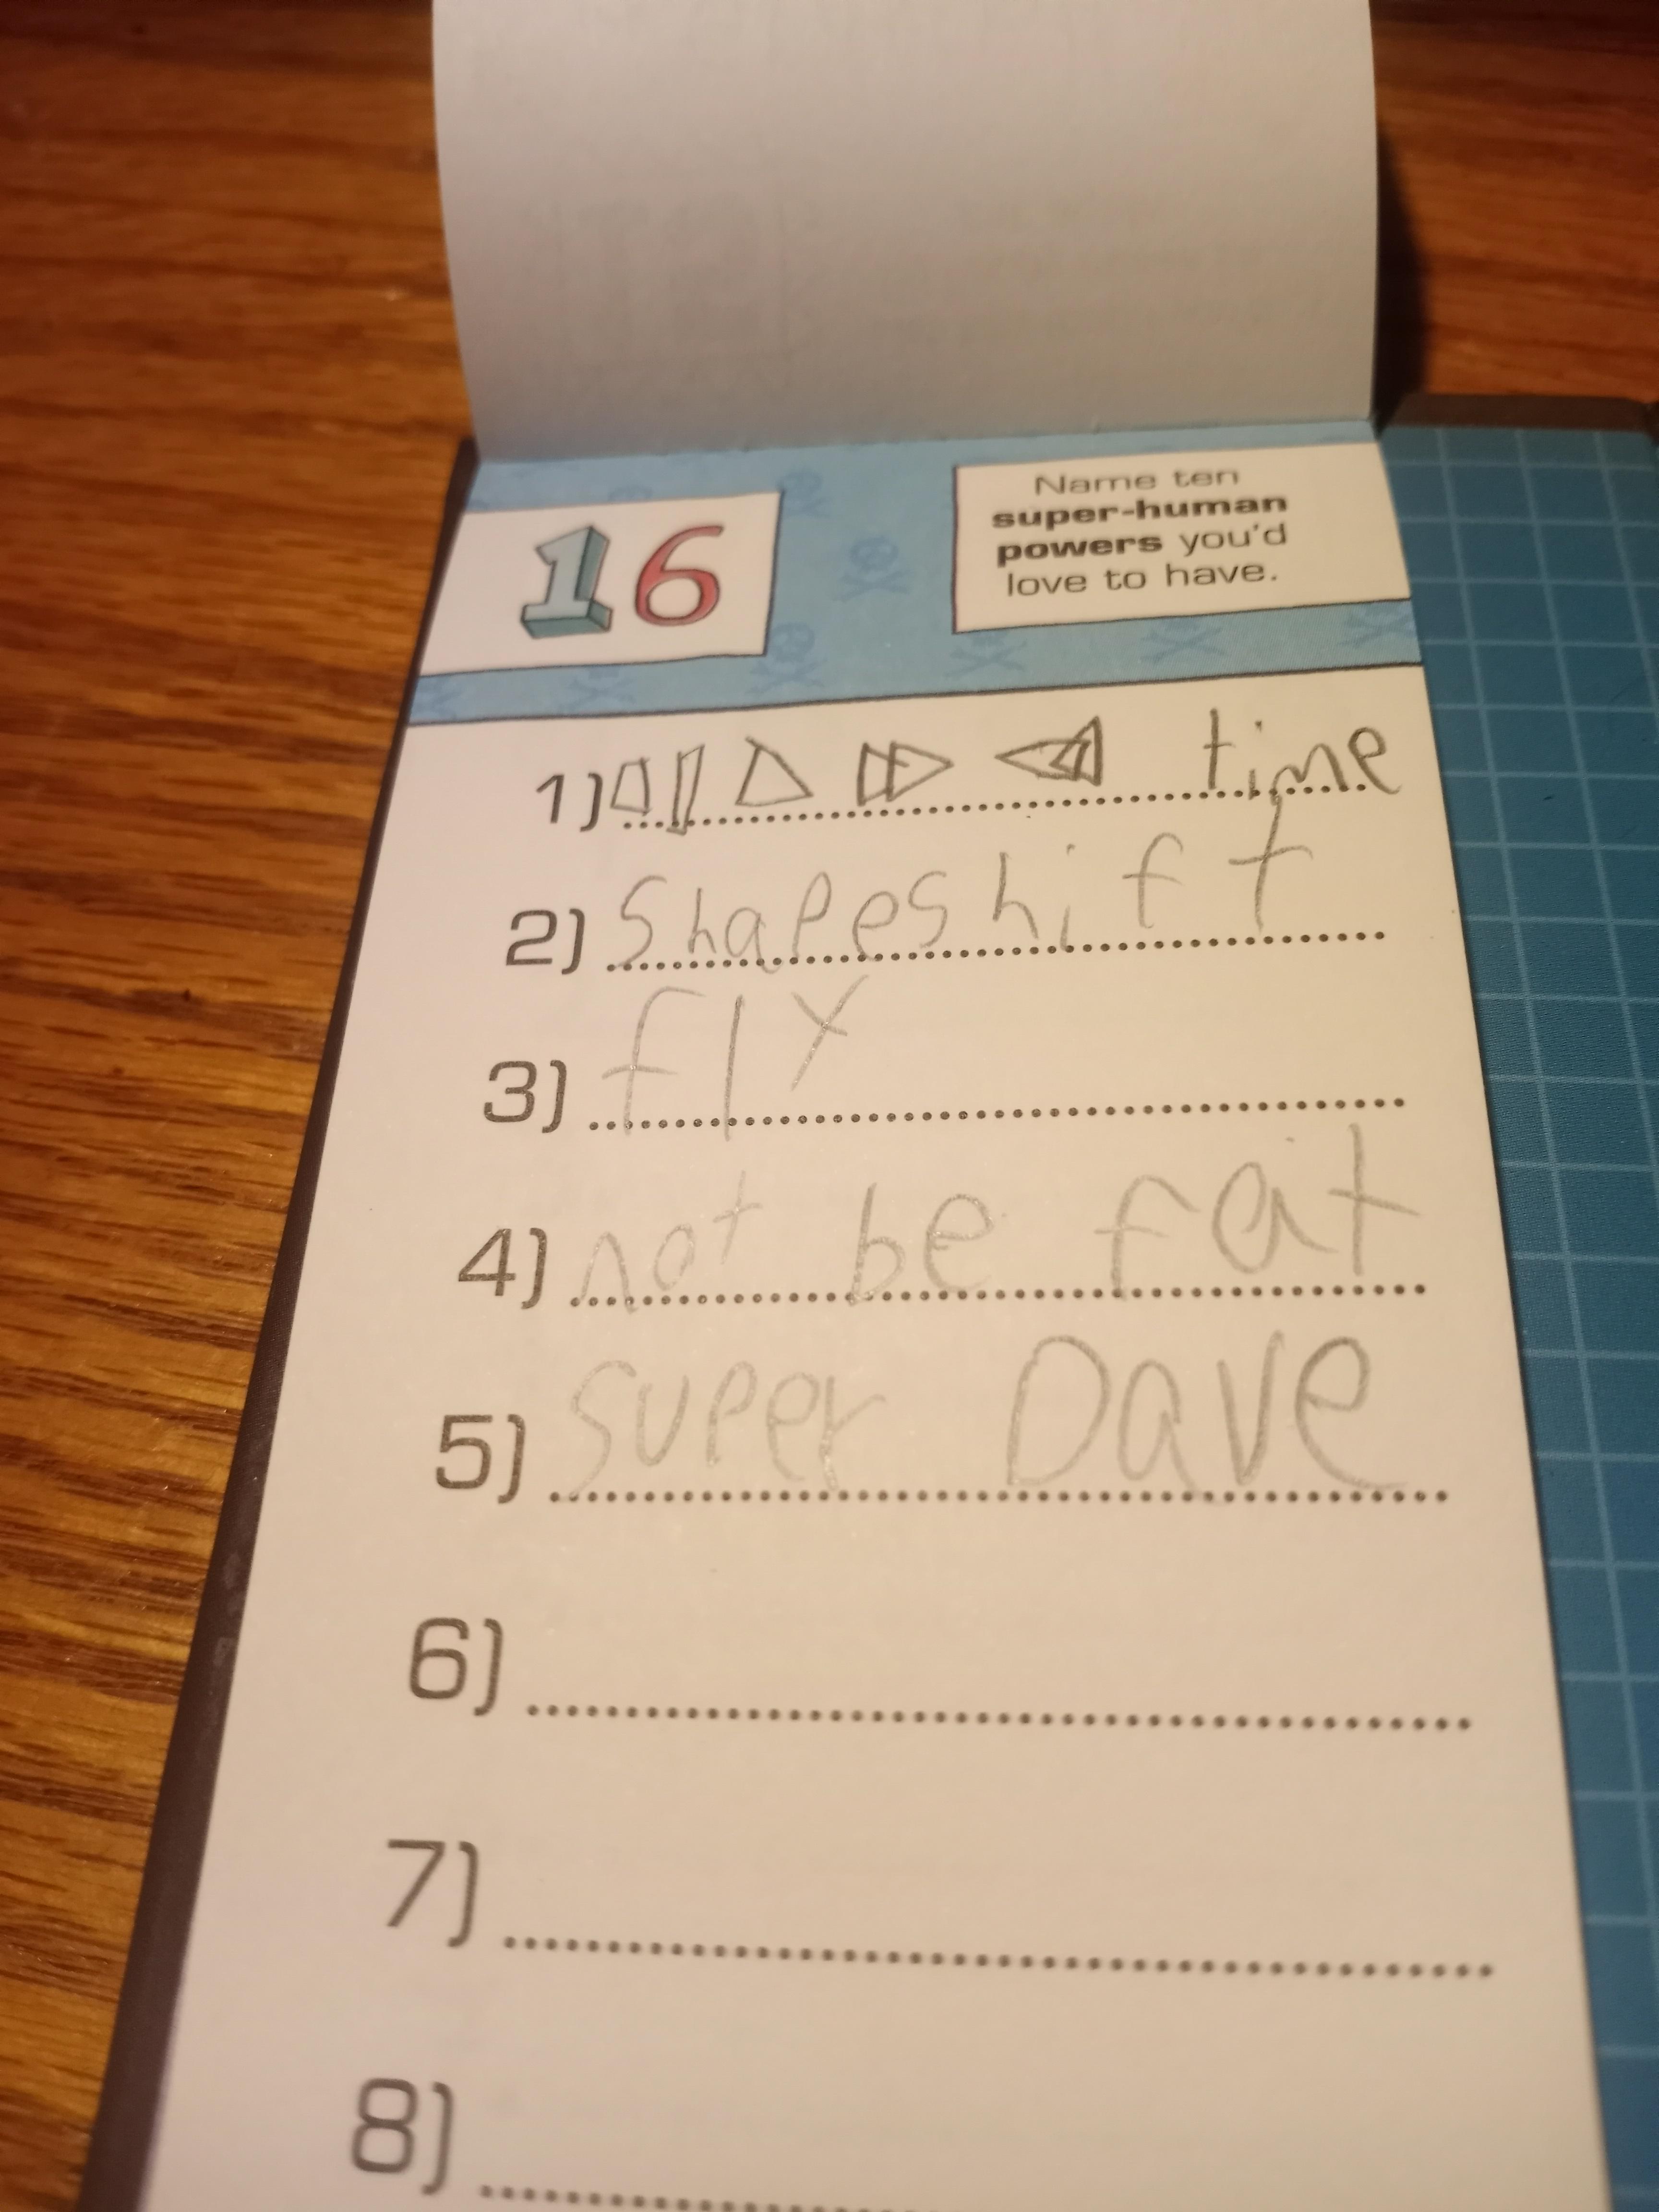 16
Name ten
super-human
powers you'd
love to have.
1) time
2) shapeshift
3) fly
4) not be fat
5) super Dave
6)
7)
8)